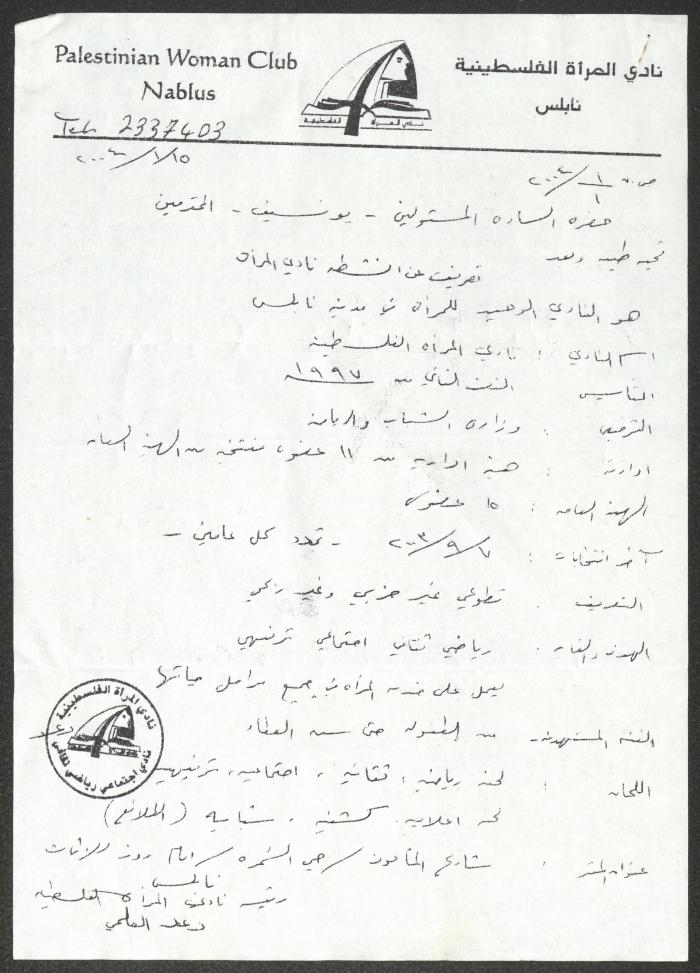 Palestinian Woman Club
Nablus
Tel. 2337403
نادي المرأة الفلسطينية
نابلس
نادي المرأة الفلسطينية
٢٠٠٤/١/١٥
٢٠٠٤/١/١
حضرة السادة المسئولين - يونسيف - المحترمين
تحيه طيبه وبعد
تعريف عن انشطة نادي المرأة
هو النادي الوحيد للمرأة في مدينة نابلس
اسم النادي : نادي المرأة الفلسطينية
التأسيس النصف الثاني من ١٩٩٧
الترخيص : وزارة الشباب والرياضة
ادارته : هيئة ادارية من ١١ عضو، منتخبة من الهيئة العامة
الهيئة العامة : ١٥ عضوة
آخر انتخابات : ٢٠٠٣/٩/٧ - تجدد كل عامين -
التعريف : تطوعي غير حزبي وغير ربحي
الهدف والغاية : رياضي ثقافي اجتماعي ترفيهي
يعمل على خدمة المرأة في جميع مراحل حياتها
الفئة المستهدفة - من الطفولة حتى سن العطاء
اللجان : لجنة رياضية، ثقافية، اجتماعية، ترفيهية
لجنة اعلامية، كشفية، شبابية (الطلائع)
عنوان المقر : شارع المأمون / حي الشجرة / امام روز للاثاث
نابلس
رئيسة نادي المرأة الفلسطينية
دعد العلمي
نادي المرأة الفلسطينية
نادي اجتماعي رياضي ثقافي